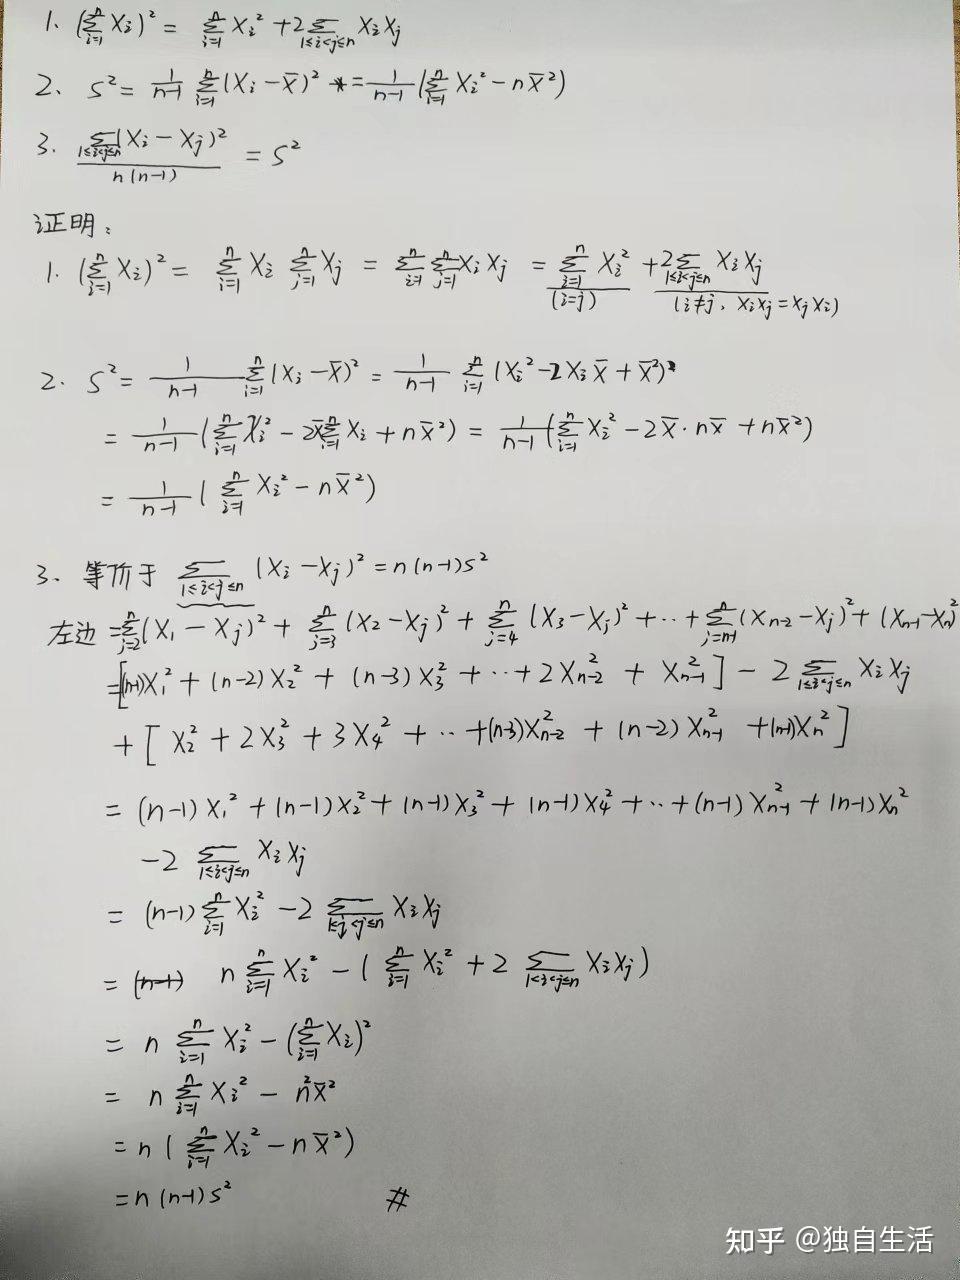 1. (∑_{i=1}^{n} X_i)² = ∑_{i=1}^{n} X_i² + 2∑_{1≤i<j≤n} X_i X_j
2、 S² = 1/(n-1) ∑_{i=1}^{n} (X_i - X̄)² = 1/(n-1) (∑_{i=1}^{n} X_i² - nX̄²)
3. ∑_{1≤i<j≤n} (X_i - X_j)² / n(n-1) = S²
证明:
1. (∑_{i=1}^{n} X_i)² = ∑_{i=1}^{n} X_i ∑_{j=1}^{n} X_j = ∑_{i=1}^{n} ∑_{j=1}^{n} X_i X_j = ∑_{i=1}^{n} X_i² + 2∑_{1≤i<j≤n} X_i X_j
(i=j) (i≠j, X_i X_j = X_j X_i)
2. S² = 1/(n-1) ∑_{i=1}^{n} (X_i - X̄)² = 1/(n-1) ∑_{i=1}^{n} (X_i² - 2X_i X̄ + X̄²)
= 1/(n-1) (∑_{i=1}^{n} X_i² - 2X̄∑_{i=1}^{n} X_i + nX̄²) = 1/(n-1) (∑_{i=1}^{n} X_i² - 2X̄·nX̄ + nX̄²)
= 1/(n-1) (∑_{i=1}^{n} X_i² - nX̄²)
3、 等价于 ∑_{1≤i<j≤n} (X_i - X_j)² = n(n-1)S²
左边 = ∑_{j=2}^{n} (X_1 - X_j)² + ∑_{j=3}^{n} (X_2 - X_j)² + ∑_{j=4}^{n} (X_3 - X_j)² + ··· + ∑_{j=n-1}^{n} (X_{n-2} - X_j)² + (X_{n-1} - X_n)²
= [(n-1)X_1² + (n-2)X_2² + (n-3)X_3² + ··· + 2X_{n-2}² + X_{n-1}²] - 2∑_{1≤i<j≤n} X_i X_j
+ [X_2² + 2X_3² + 3X_4² + ··· + (n-3)X_{n-2}² + (n-2)X_{n-1}² + (n-1)X_n²]
= (n-1)X_1² + (n-1)X_2² + (n-1)X_3² + (n-1)X_4² + ··· + (n-1)X_{n-1}² + (n-1)X_n²
-2 ∑_{1≤i<j≤n} X_i X_j
= (n-1)∑_{i=1}^{n} X_i² - 2∑_{1≤i<j≤n} X_i X_j
= n∑_{i=1}^{n} X_i² - (∑_{i=1}^{n} X_i² + 2∑_{1≤i<j≤n} X_i X_j)
= n∑_{i=1}^{n} X_i² - (∑_{i=1}^{n} X_i)²
= n∑_{i=1}^{n} X_i² - n²X̄²
= n(∑_{i=1}^{n} X_i² - nX̄²)
= n(n-1)S² #
知乎 @独自生活